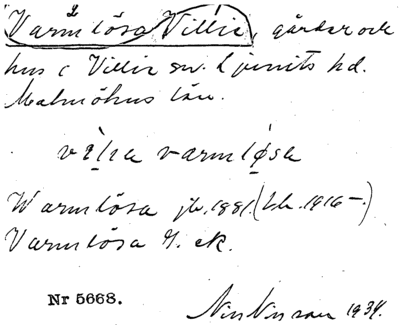 Varmlösa Villie, gårdar och
hus i Villie sn. Ljunits hd.
Malmöhus län.
vilia varmløsa
Warmlösa jb. 1881. (lb. 1916–)
Varmlösa G. ek.
Nr 5668. Nils Nilsson 1934.